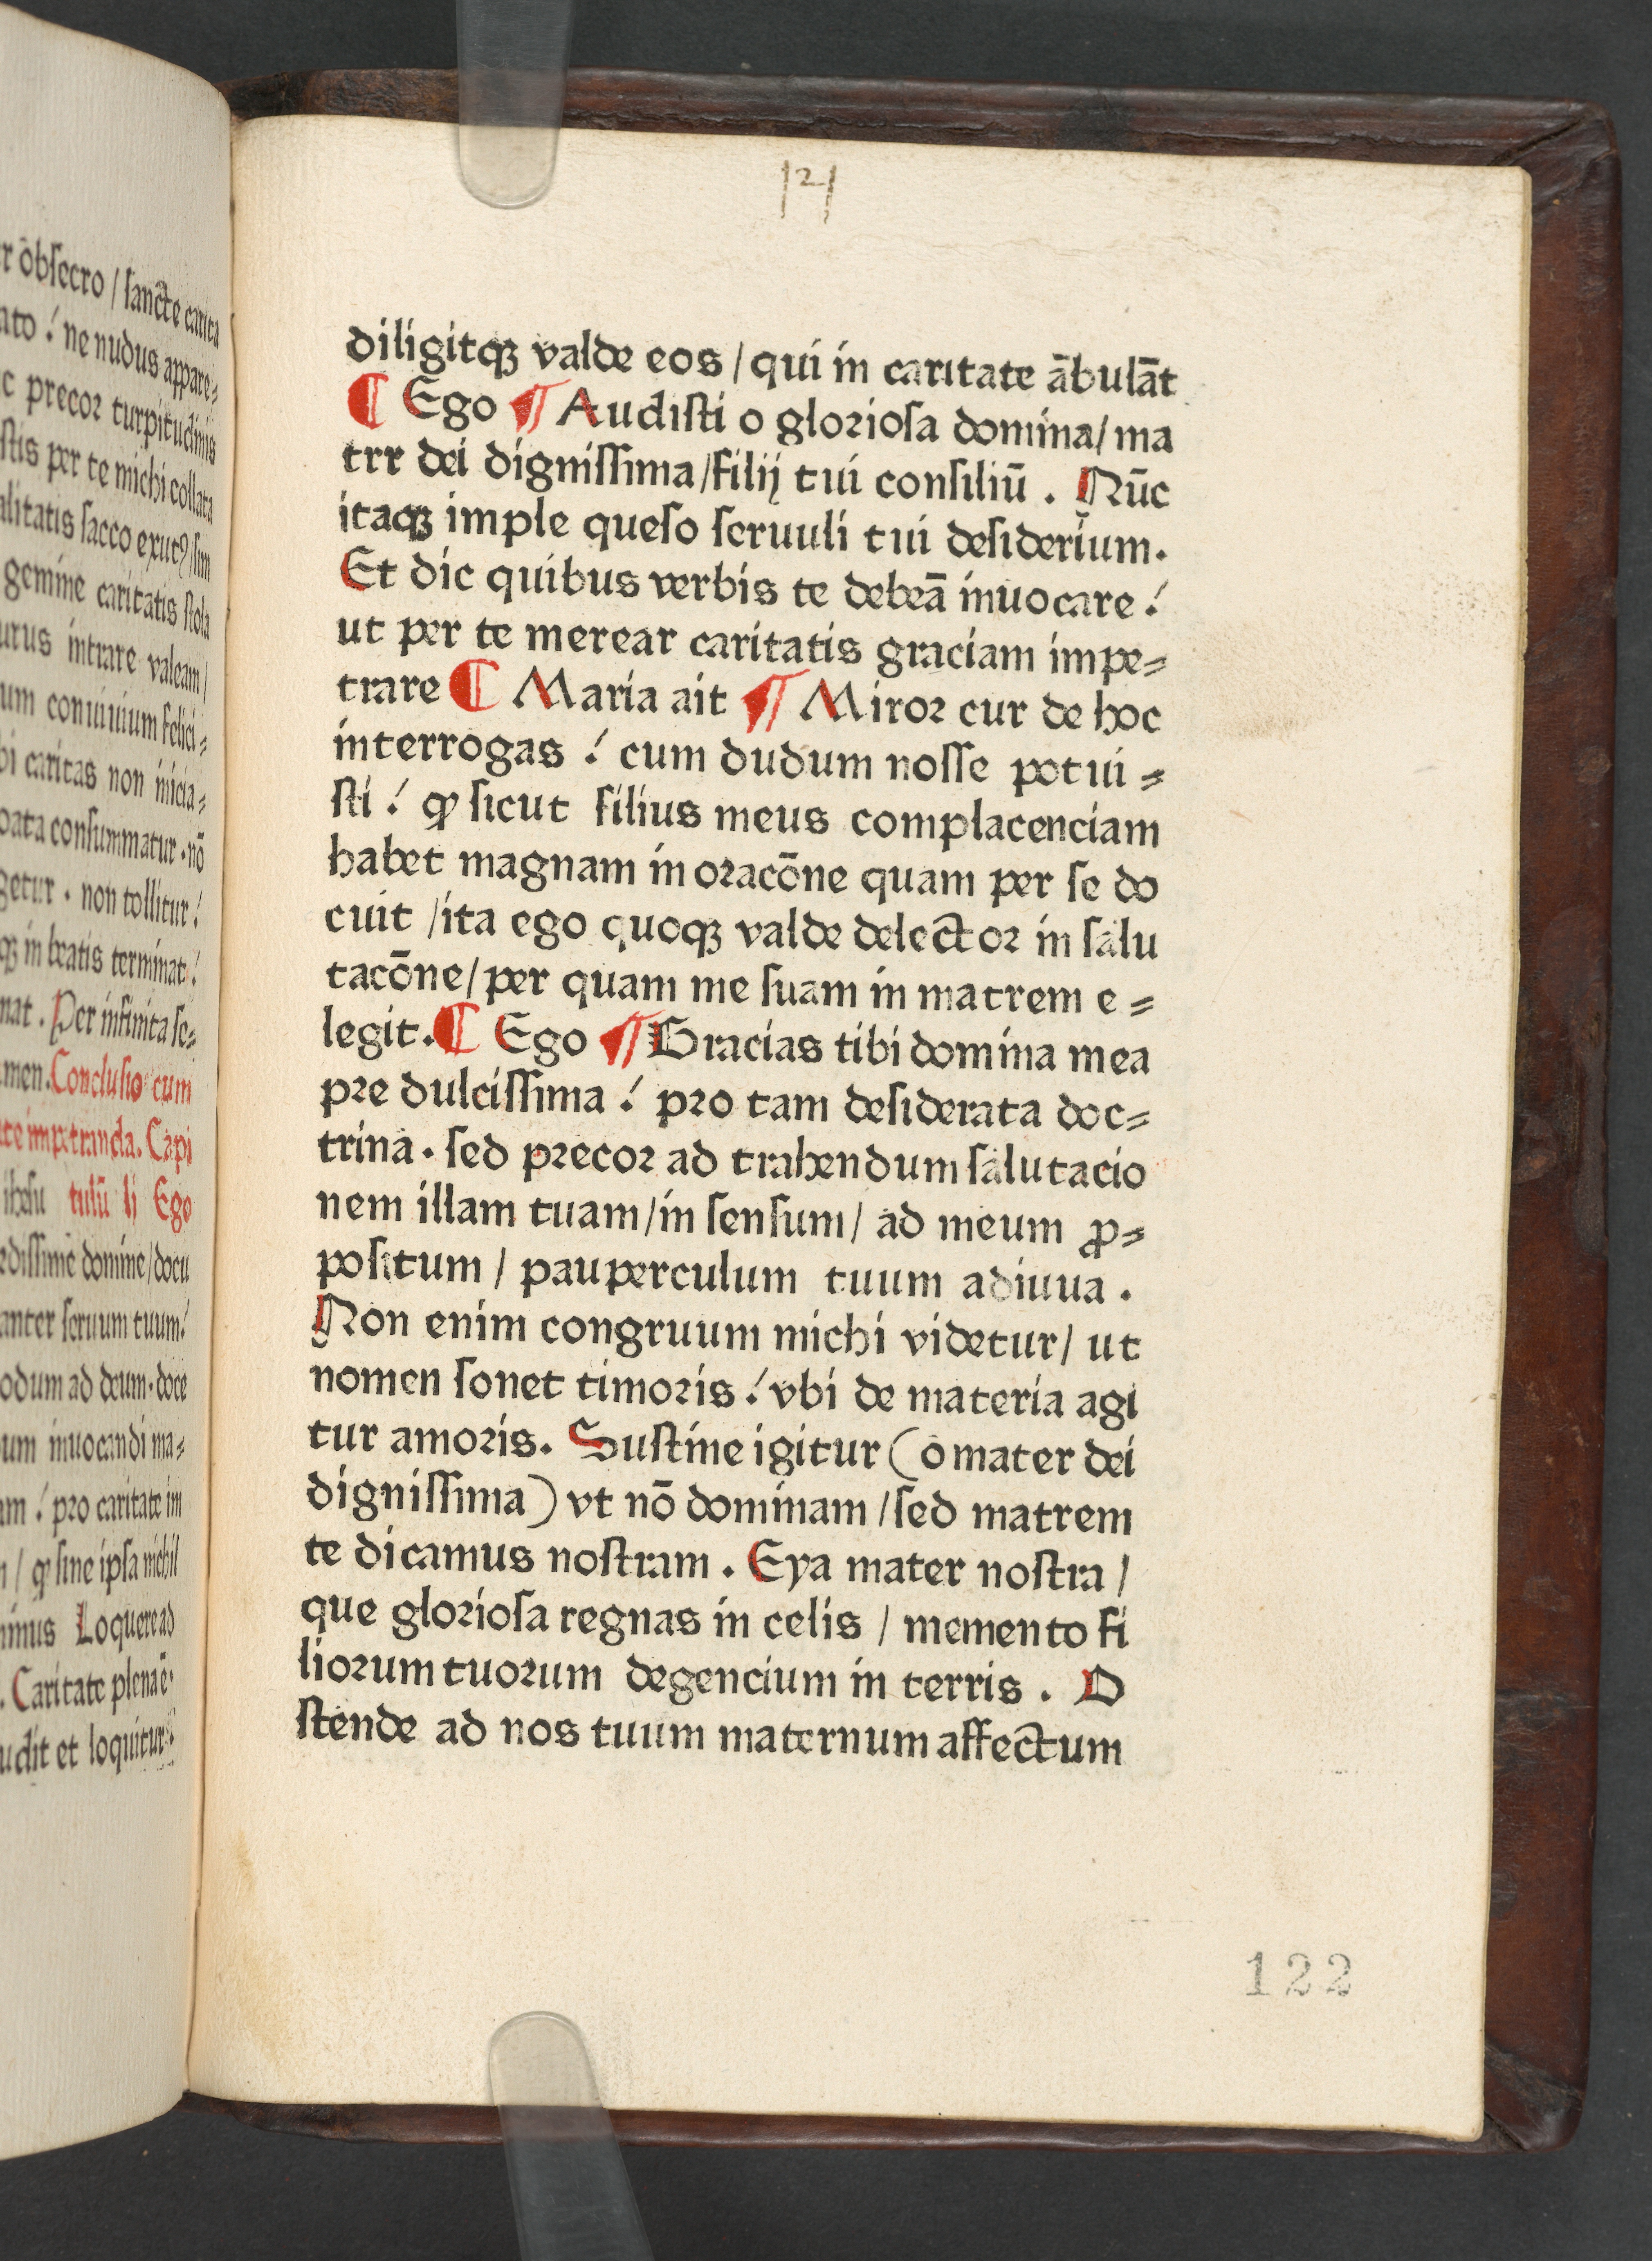 r ōbsecro / sancte carita
ato ! ne nudus appare=
c precor turpitudinis
stis per te michi collata
alitatis sacco exutꝰ / sim
gemine caritatis stola
urus intrare valeam /
um conuiuium felici=
bi caritas non inicia=
oata consummatur . nō
getur . non tollitur !
qꝫ in beatis terminat !
nat . Per infinita se=
men. Conclusio cum
te impetranda. Capi
ihesu tulū lj Ego
edissime domine / docu
anter seruum tuum !
odum ad deum . doce
um inuocandi ma=
am ! pro caritate im
/ ꝙ sine ipsa michil
imus Loquere ad
. Caritate plena ē.
udit et loquitur.
121
diligitqꝫ valde eos / qui in caritate ābulāt
¶ Ego ¶ Audisti o gloriosa domina / ma
trr dei dignissima / filij tui consiliū . Nūc
itaqꝫ imple queso seruuli tui desiderium.
Et dic quibus verbis te debeā inuocare !
ut per te merear caritatis graciam impe=
trare ¶ Maria ait ¶ Miror cur de hoc
interrogas ! cum dudum nosse potui =
sti ! ꝙ sicut filius meus complacenciam
habet magnam in oracōne quam per se do
cuit / ita ego quoqꝫ valde delector in salu
tacōne / per quam me suam in matrem e =
legit. ¶ Ego ¶ Gracias tibi domina mea
pre dulcissima ! pro tam desiderata doc=
trina . sed precor ad trahendum salutacio
nem illam tuam / in sensum / ad meum ꝓ=
positum / pauperculum tuum adiuua .
Non enim congruum michi videtur / ut
nomen sonet timoris ! vbi de materia agi
tur amoris. Sustine igitur ( o mater dei
dignissima ) vt nō dominam / sed matrem
te dicamus nostram . Eya mater nostra /
que gloriosa regnas in celis / memento fi
liorum tuorum degencium in terris . O
stende ad nos tuum maternum affectum
122